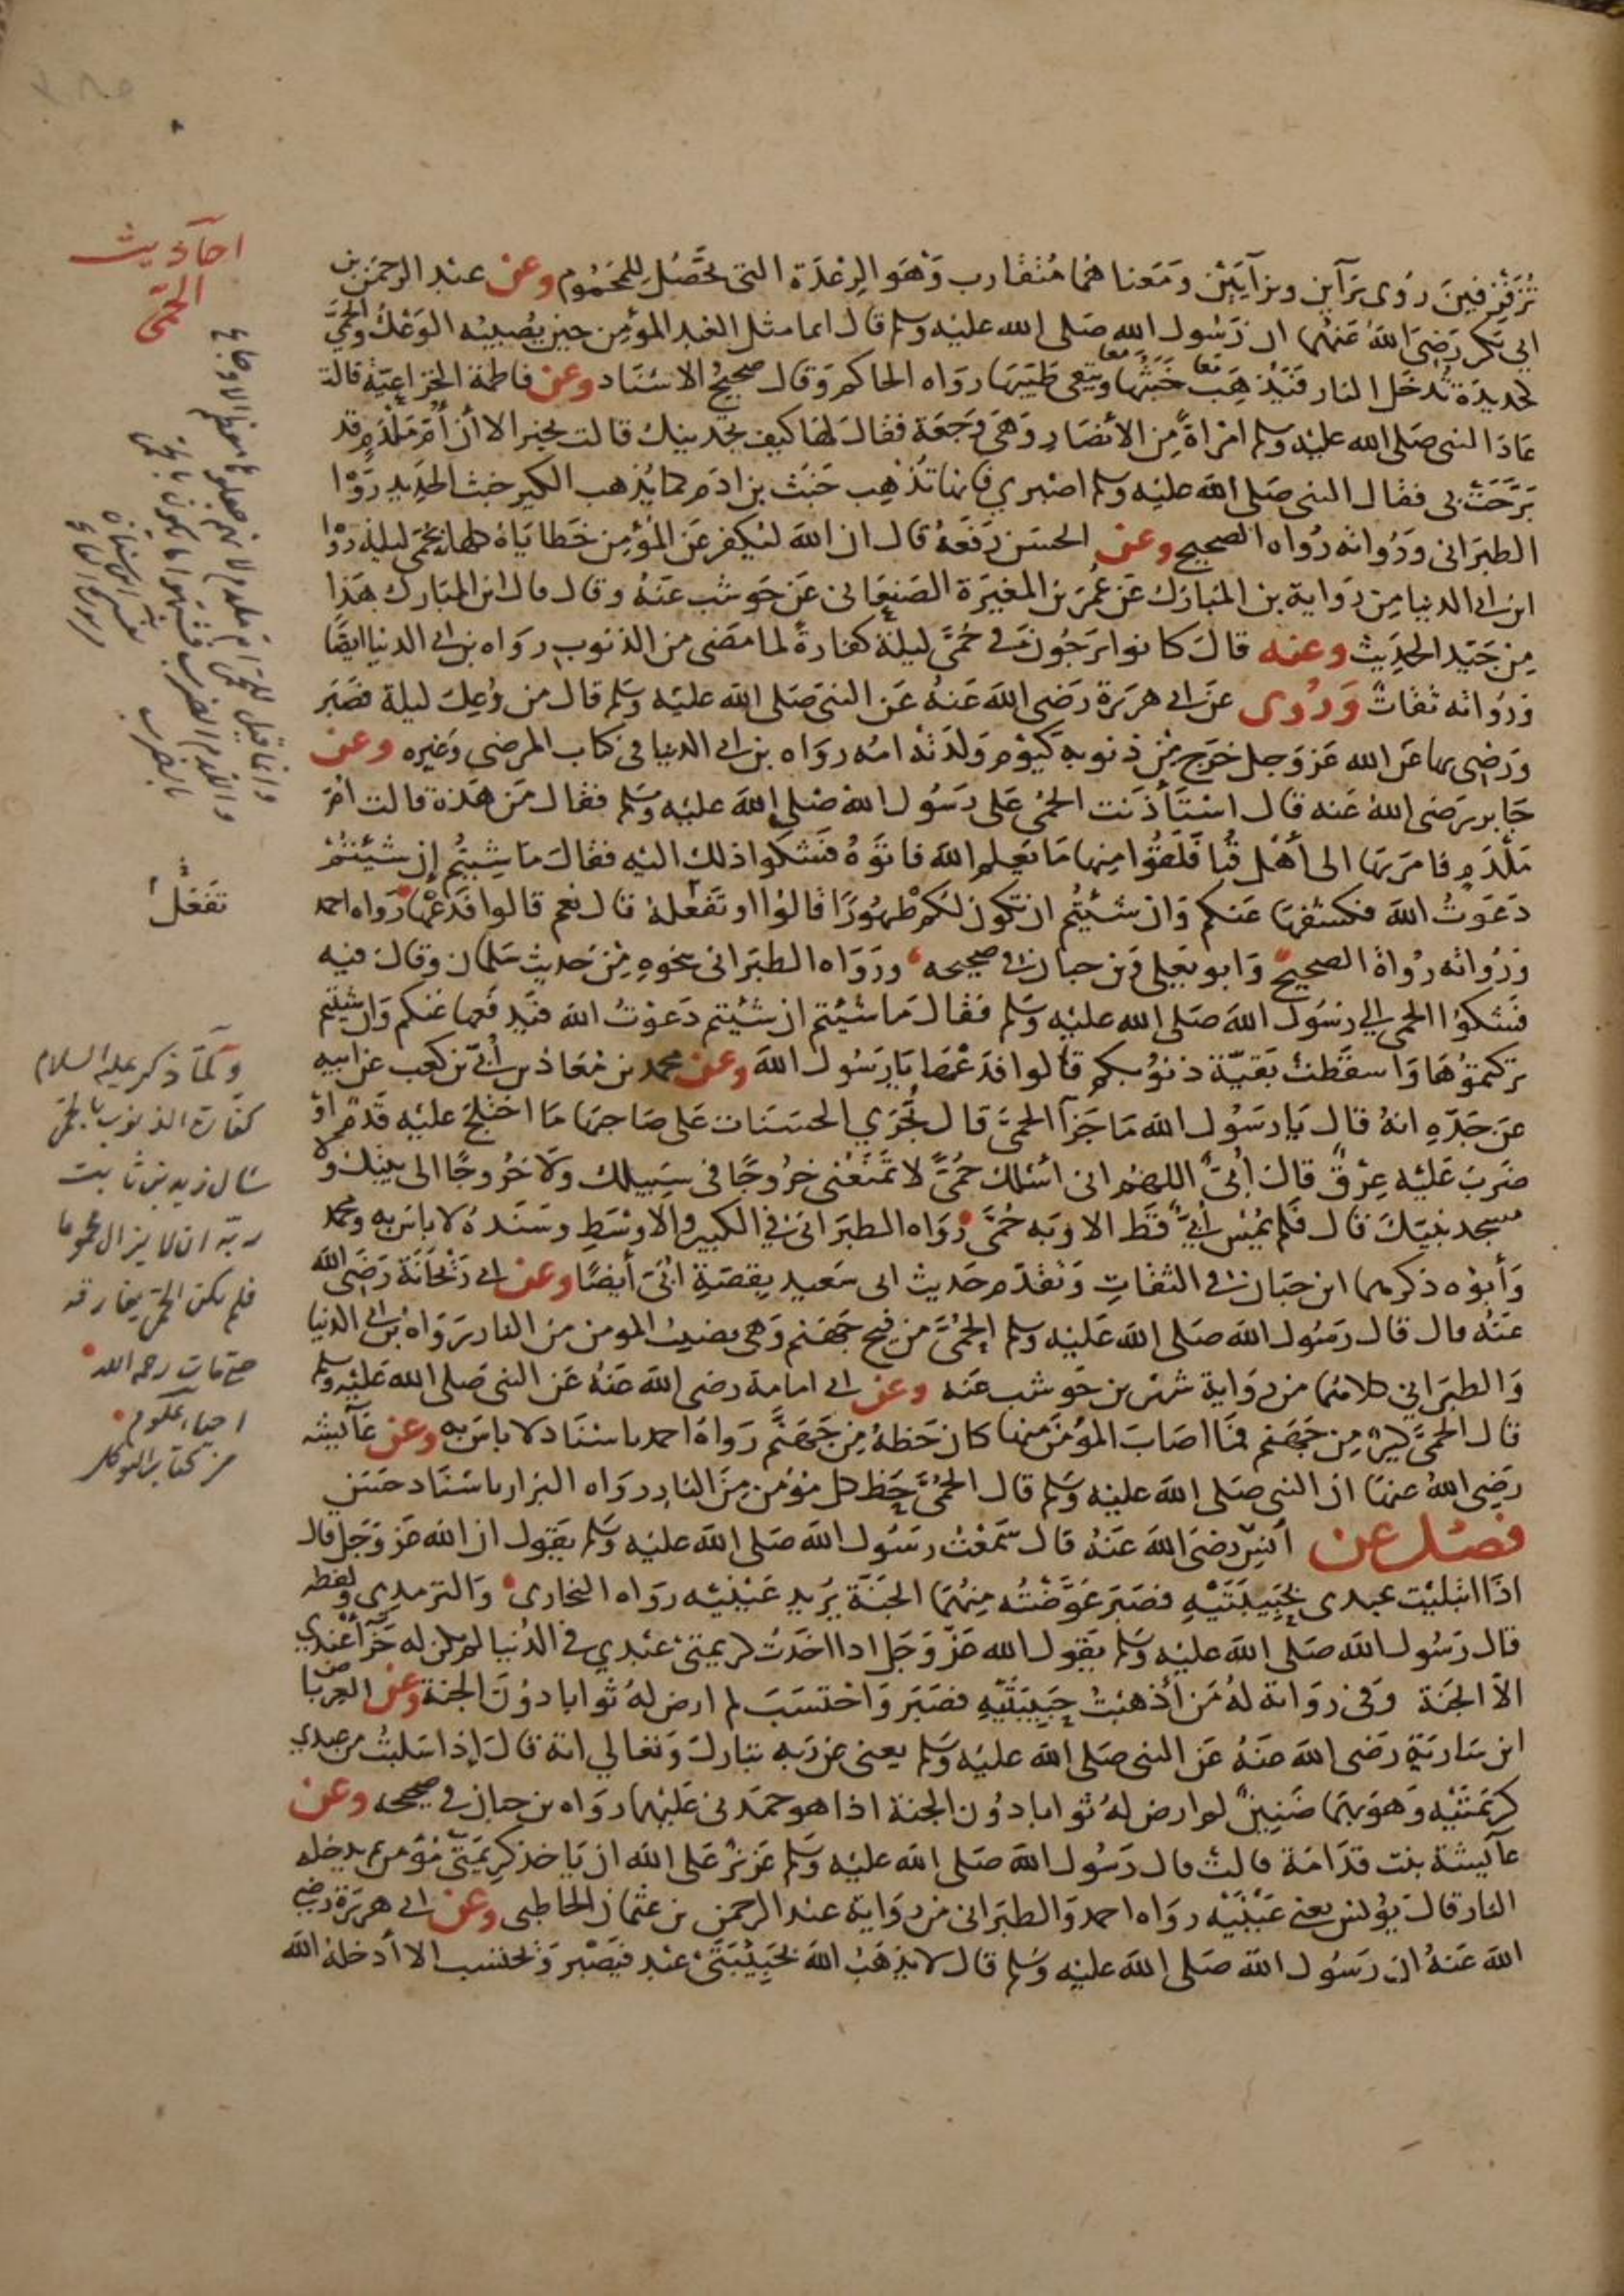 تُزَفزفينَ رُوى برَآين وبزآيَيْن وَمَعنا هُمَا مُتقارب وَهَو الرِعْدَة التى تحَصُل لِلمحَمُوم وعن عبْد الرحمَن بن
ابى بَكر رَضىَ اللهُ عَنهُما ان رَسُول الله صَلى الله عليْه وسلم قال انما مثل العَبد المؤمِن حِين يُصيبُه الوَعْك والحمَّى
كحديدَة تُدخَل النار فيَذهَب خَبَثها ويَبقى طَيّبها رواه الحاكم وَقال صحيحُ الاسْنَاد وعن فاطمة الخزاعيّة قالت
عَادَ النبى صَلى الله عليْه وسلم امْرَاةً مِن الأنصَار وَهىَ وَجعَة فقال لهَا كيف تجدينك قالت بخير الا أنَّ أُمَّ مِلْدَم قد
بَرَّحَت بى فقال النبى صَلى الله عليه وسلم اصْبري فانها تُذهِب خبَثَ بن ادَم كما يُذهب الكير خبث الحَديد رَوَا
الطبَرَانى ورُواته رُواه الصحيح وعن الحسَن رَفَعَهُ قال ان الله ليُكفر عَن المُؤمِن خَطايَاهُ كلها بحُمّى ليلة رَوا
ابن ابى الدنيا مِن رواية بن المبَارَك عَن عُمَر بن المغيرَة الصَنعَانى عَن حَوشب عَنهُ وقال قال ابن المبَارك هَذا
مِن جَيّد الحَدِيث وعنه قالَ كانوا يَرجُونَ فى حُمَّى ليلةٍ كفارةً لما مضَى من الذنوب رواه بن ابى الدنيا ايضًا
وَرُواته ثقاتٌ وَرُوى عَن ابى هريرَة رَضى الله عَنهُ عَن النبى صَلى الله عليْه وسَلم قال من وُعِكَ ليلة فصَبَر
ورَضى بها عَن الله عَز وَجل خرَج مِن ذنوبه كيَوْم وَلدَتهُ امُه روَاه بن ابى الدنيا فى كتاب المرضى وَغيره وعن
جَابر رَضى اللهُ عَنه قال استَأذنَت الحُمى عَلى رَسُول الله صَلى الله عليْه وسَلم فقال مَن هَذه قالت امُّ
مِلْدَم فامَر بهَا الى أهْل قُبا فلقُوا منِها مَا يَعلم الله فاتوهُ فشكوا ذلك اليْه فقالَ مَا شِيتُم إن شيْتُمْ
دَعَوتُ الله فكشفهَا عَنكم وَان شئتُم ان تكون لكم طَهُورًا قالوا او تفعَلهُ قال نعم قالوا فَدَعْهَا رَواه احمد
ورُواته رُواة الصحيحْ وَابو يَعلى وَبن حبان فى صحيحه وروَاه الطبَرانى بنحوه مِن حَديث سَلمان وقال فيه
فَشكوُا الحمى الى رَسُول اللهَ صَلى الله عليْه وسَلم فقالَ مَا شئتم ان شئيتم دَعَوْتُ الله فيَدفعها عَنكم وَان شئتم
تركتموُهَا وَاسقَطت بَقيّة ذنوُبكم قالوا فدَعْها يَا رسُول الله وعن محمد بن مُعَاذ بن أُبَىّ بن كعب عَن ابيه
عَن جَدّه انهُ قال يَا رسُول الله مَا جَزآ الحمىَّ قال تُجرَي الحسَنات عَلى صَاحِبها مَا اختلجَ عليْه قدَم اوْ
ضَربَ عَليْه عِرْق قالَ أُبَىّ اللهُم انى اسْئلك حُمىًّ لا تمنعُنى خرُوجًا فى سَبيلك وَلا خرُوجًا الى بيتك ولا
مسجد نبيّكَ قال فلم يُمْسِ أُبَىٌّ قط الا وبَه حُمىَّ رَوَاه الطبَرانى فى الكبير والاوسَط وسَندهُ لا باس به ومحمد
وَأبوُه ذكرهما ابن حبَان فى الثقاتِ وَتقدّم حَديث ابى سَعيد بقصَةِ ابَىّ أيضًا وعن ابى رَيْحانَة رَضىَ الله
عَنهُ قال قال رَسُول الله صَلى الله عَليْه وسلم الحُمىَّ من فيْح جَهنم وَهى نصيبُ المومن من النار رَوَاهُ بن ابى الدنيا
وَالطبَرانى كلاهما من رَواية شهْر بن حَوشب عَنه وعن ابى امامة رضى الله عَنهُ عَن النبى صَلى الله عَليْه وسلم
قال الحمىَّ كيرٌ مِن جَهنم فمَا اصَابَ المؤمَن منها كان حَظهُ مِن جَهنَّم رَواهُ احمد باسنَاد لا باسَ به وعن عَآيشه
رَضى اللهُ عنهَا ان النبى صَلى الله عَليْه وسَلم قال الحمُىَّ حَظ كل مؤمن مِنَ النار رواه البزار باسْنَاد حسَن
فصْل عن أنسٍ رضىَ الله عَنهُ قال سَمعْتُ رسُول الله صَلى الله عليْه وسَلم يقول ان الله عَز وَجَل قال
اذَا ابتليْت عبدى بحَبِيبَتَيْهِ فصَبَر عَوَّضْتُه مِنهُما الجنَة يُريد عَيْنيْه رواه البخارى وَالترمدِى ولفظه
قال رَسُول الله صَلى الله عليْه وسَلم يقول الله عَزّ وَجَل اذا اخذت كريمتىْ عبْدي فى الدُنيا لم يكن له جَزَآ عندي
الاّ الجَنة وَفى روَاية لهُ مَن أذهبْتُ حَبيبَتيْهِ فصَبَر وَاحْتسَبَ لم ارض لهُ ثوابا دوُنَ الجنة وعن العربا ض
ابن سَاريَة رَضى الله عنَهُ عَن النبى صَلى الله عليْه وسَلم يعنى عن رَبه تبَاركَ وتعَالي انهُ قالَ إذا سَلبتُ من عبدي
كريمَتَيْه وَهوَ بهمَا ضَنينٌ لم ارض لهُ ثوابا دُون الجنة اذا هو حمدَنى عَليْهما رواه بن حبان فى صحيحه وعن
عآيشة بنت قدَامَة قالتْ قال رَسُول الله صَلى الله عليْه وسَلم عَزيزٌ عَلى الله ان يَاخذ كريمَتَىْ مُؤمن ثم يدخله
النار قالَ يوُنس يعنى عَيْنيْه رواه احمد وَالطبَرانى من رواية عبْد الرحمن بن عثمان الحاطبى وعن ابى هريرَة رَضى
اللهَ عَنهُ ان رَسُول الله صَلى الله عليْه وسَلم قال لا يذهَبُ الله بحَبيْبَتَىْ عبْد فيَصْبر وَيحتسب الا أدخله الله
احآديث
الحمّى
تفَعَلُ
وَلمَّا ذكر عليه السلام
كفّارة الذنوب بالحمّى
سَال زيد بن ثابت
ربّه ان لا يزال محموما
فلم تكن الحمّى تفارقه
حتى مات رحمه الله
احياء علوم
من كتاب التوكل